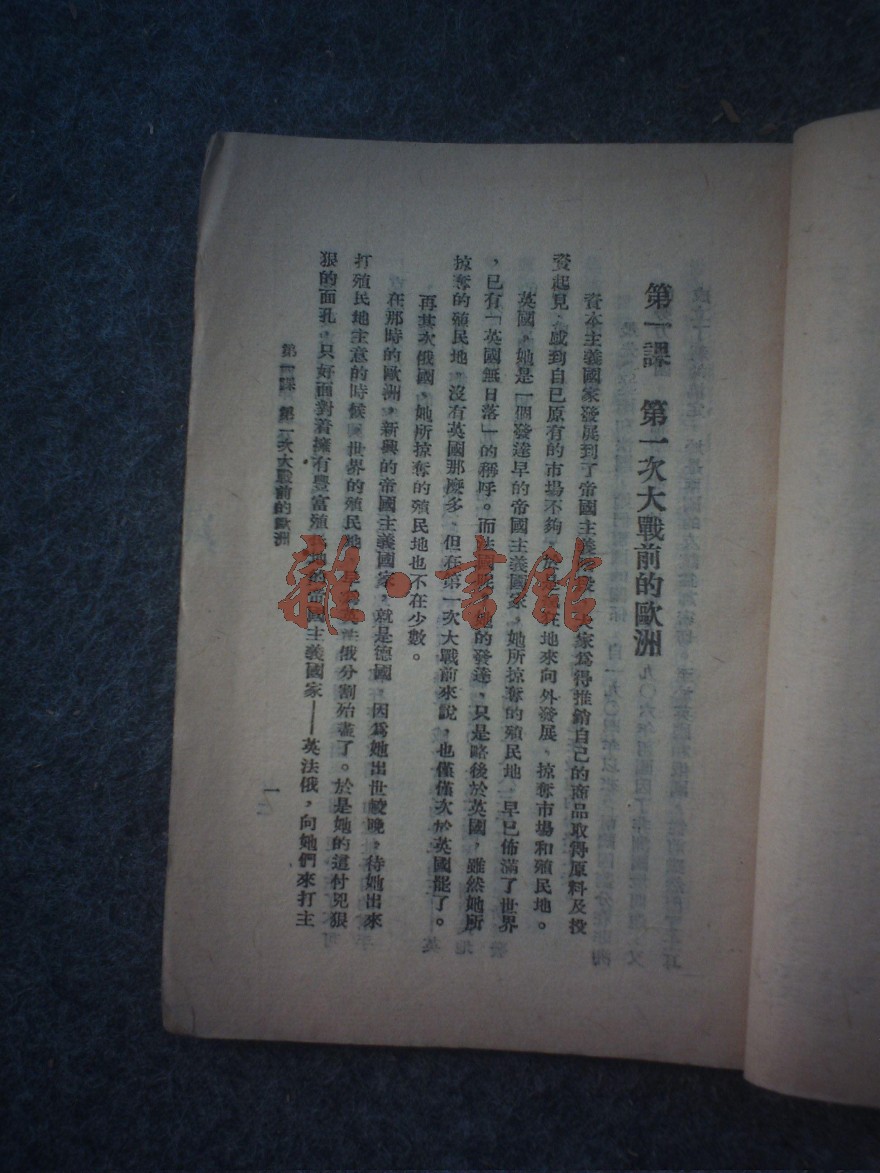 第一課　第一次大戰前的歐洲
資本主義國家發展到了帝國主義階段，大家爲得推銷自己的商品取得原料及投
資起見，感到自已原有的市場不夠，於是在地來向外發展，掠奪市場和殖民地。
英國，她是一個發達早的帝國主義國家，她所掠奪的殖民地，早已佈滿了世界
，已有「英國無日落」的稱呼。而法國呢，她的發達，只是略後於英國，雖然她所
掠奪的殖民地，沒有英國那麼多，但在第一次大戰前來說，也僅僅次於英國罷了。
再其次俄國，她所掠奪的殖民地也不在少數。
在那時的歐洲，新興的帝國主義國家，就是德國，因爲她出世較晚，待她出來
打殖民地主意的時候，世界的殖民地，早被英法俄分割殆盡了。於是她的這付兇狠
狠的面孔，只好面對着擁有豐富殖民地的帝國主義國家——英法俄，向她們來打主
第一課　第一次大戰前的歐洲
一
雜·書館